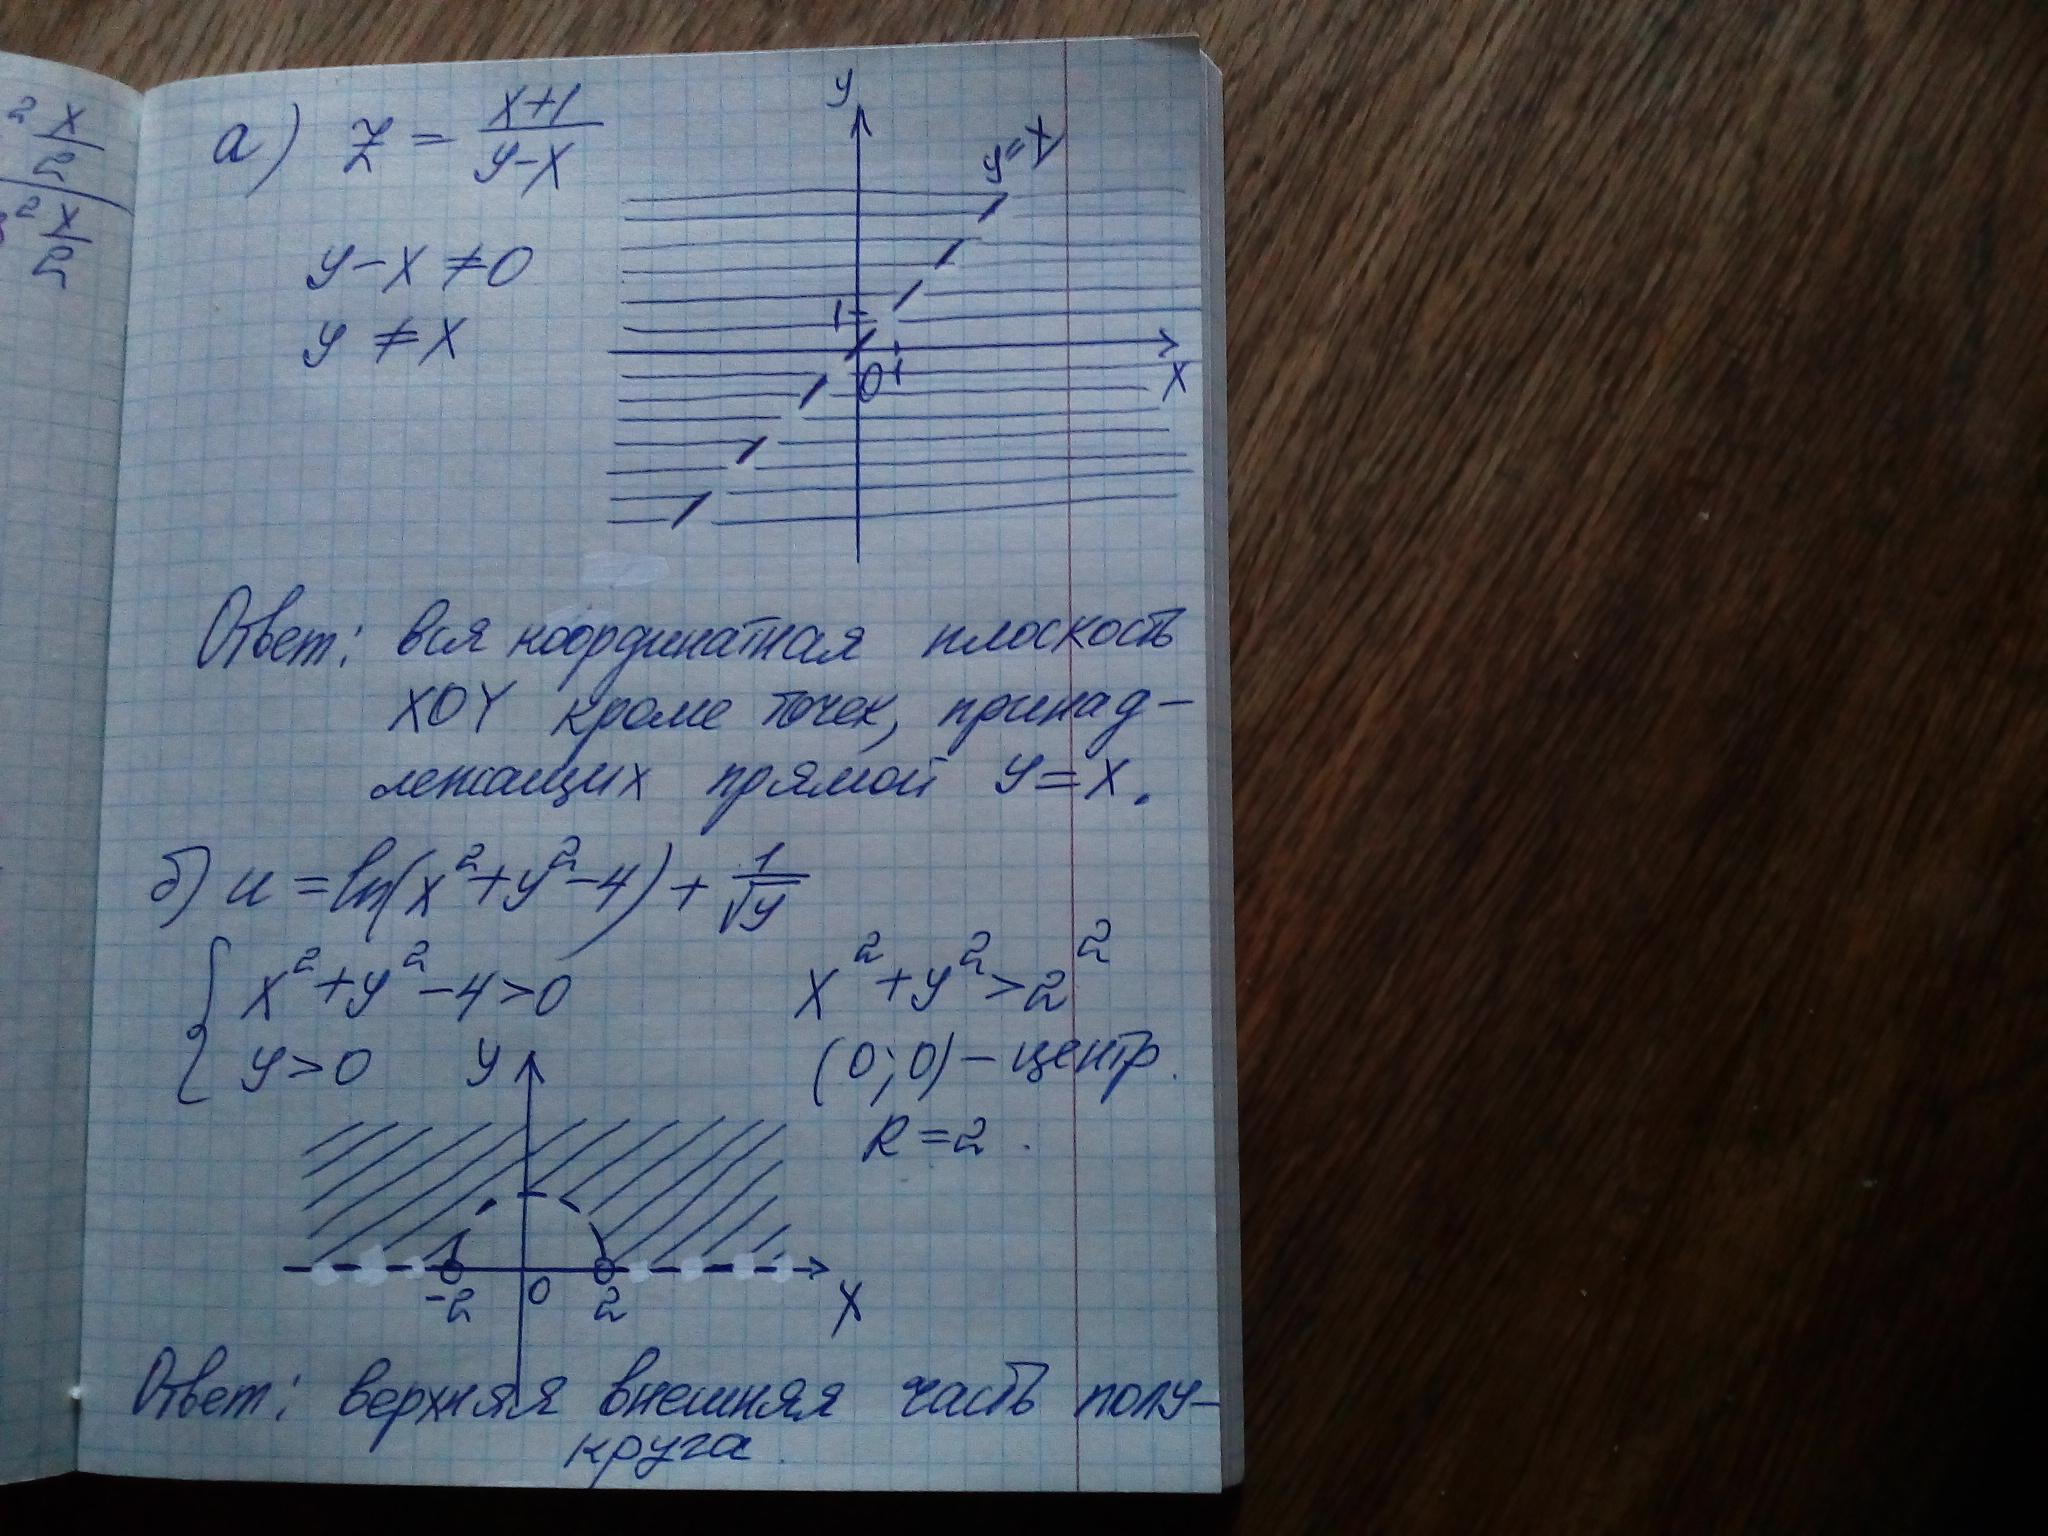 2 x/2
2 x/2
а) z = (x+1)/(y-x)
y
y=x
y-x ≠ 0
y ≠ x
1
0 1
x
Ответ: вся координатная плоскость
XOY кроме точек, принад-
лежащих прямой y=x.
б) u = ln(x²+y²-4) + 1/√y
{ x²+y²-4>0
x²+y²>2²
y>0
y
(0;0) - центр.
R=2.
-2 0 2
x
Ответ: верхняя внешняя часть полу-
круга.